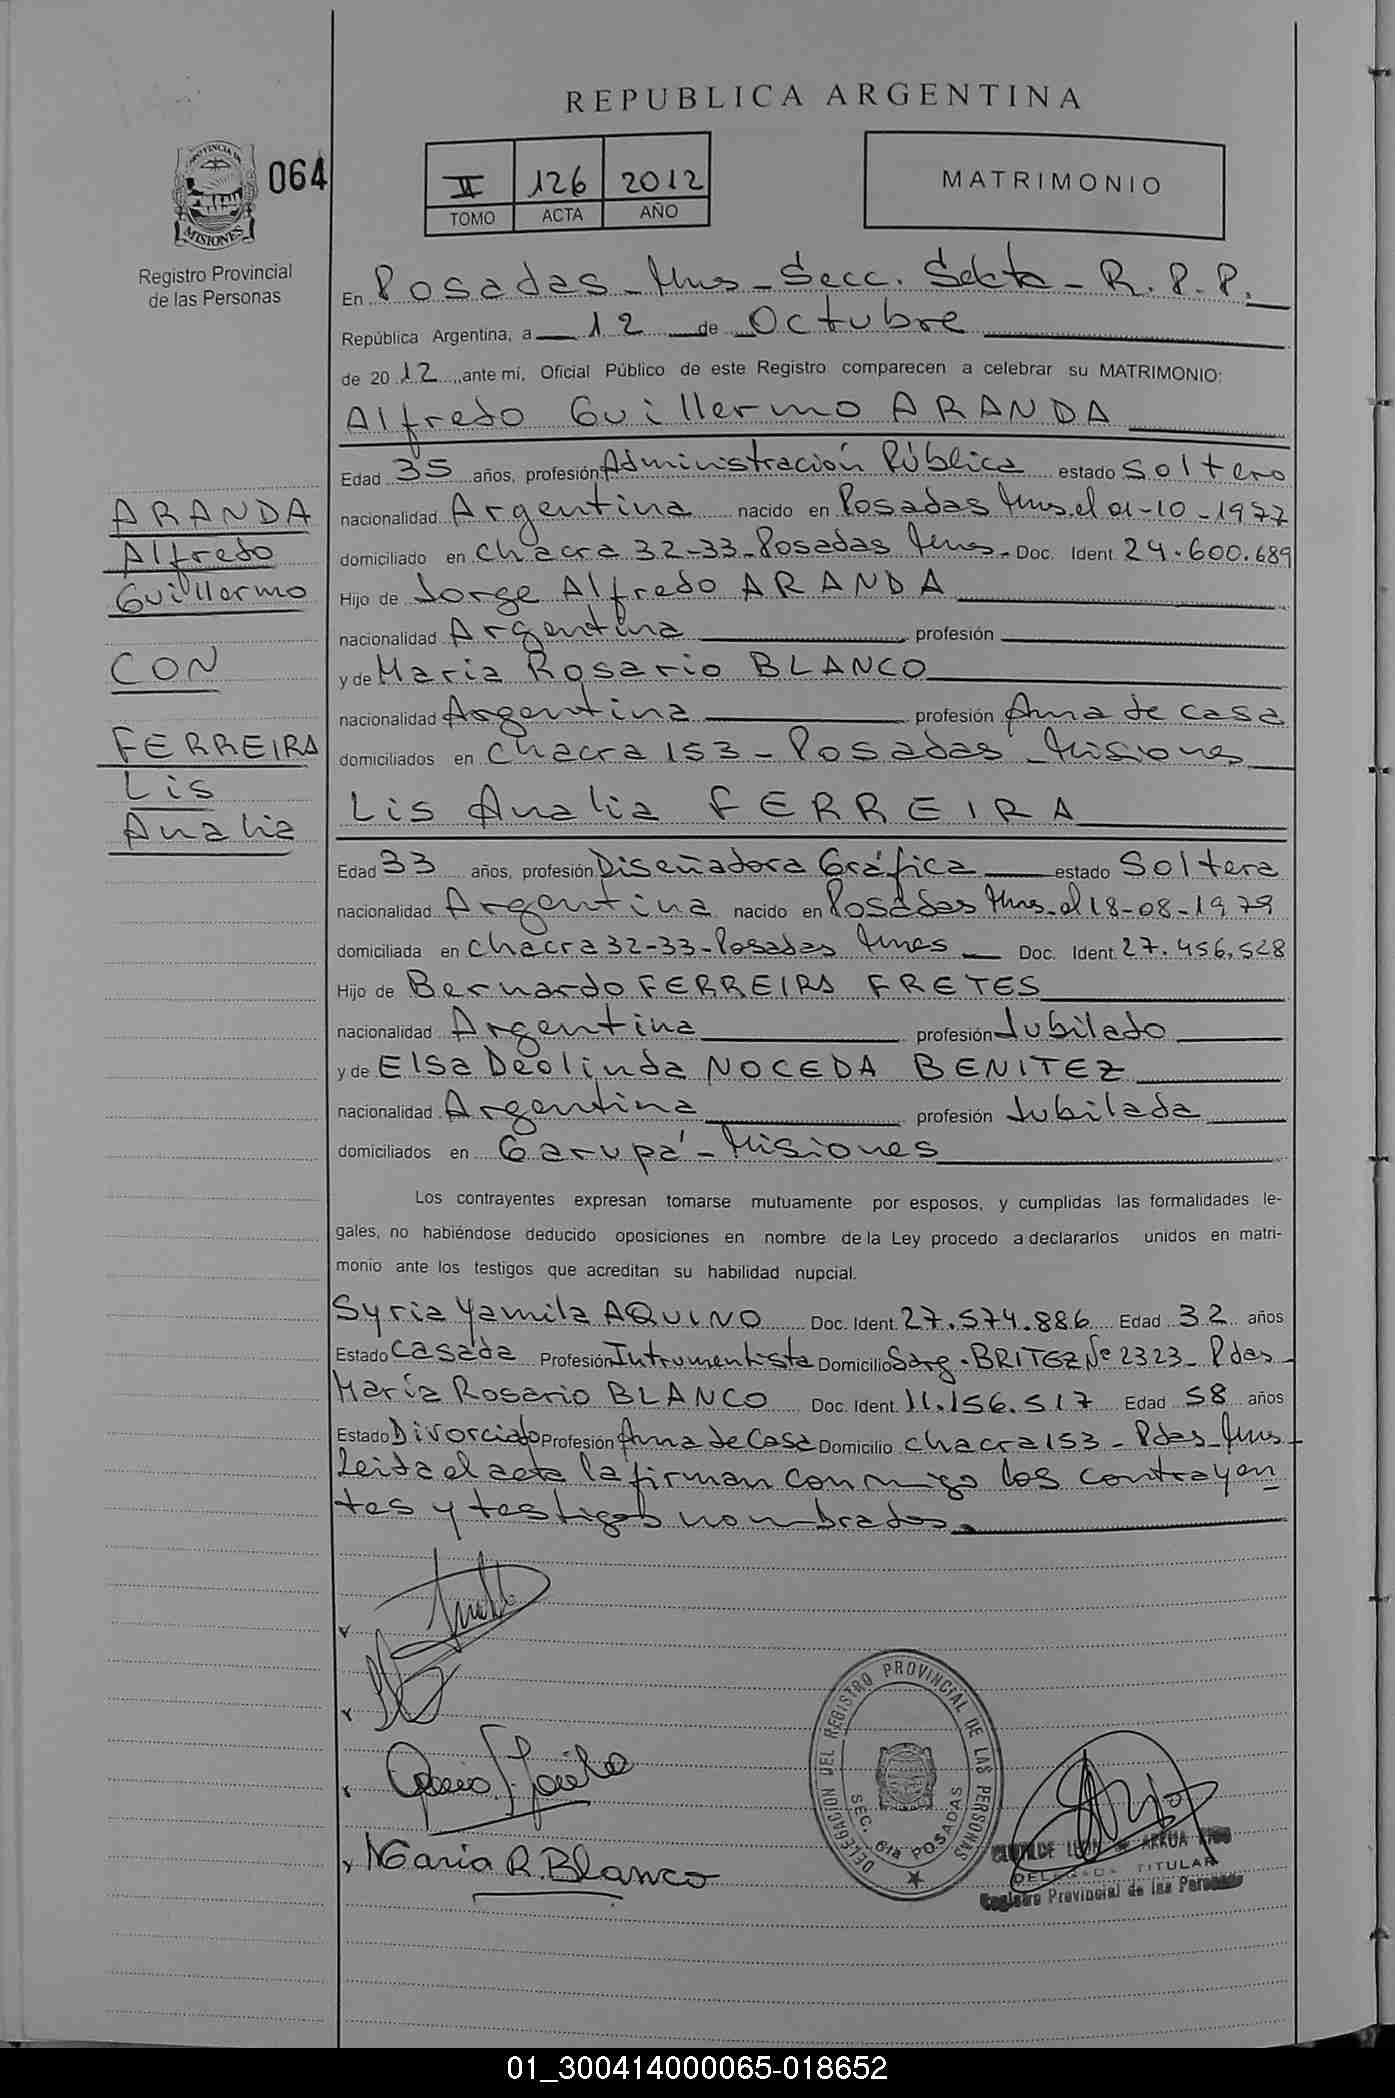 REPUBLICA ARGENTINA
PROVINCIA DE
MISIONES
064
II 126 2012
TOMO ACTA AÑO
MATRIMONIO
Registro Provincial
de las Personas
En Posadas - Mnes - Secc. Sexta - R.P.P.
República Argentina, a 12 de Octubre
de 2012, ante mi, Oficial Público de este Registro comparecen a celebrar su MATRIMONIO:
Alfredo Guillermo ARANDA
Edad 35 años, profesión Administración Pública estado Soltero
nacionalidad Argentina nacido en Posadas Mnes. el 01-10-1977
domiciliado en Chacra 32-33- Posadas Mnes. Doc. Ident. 24.600.689
Hijo de Jorge Alfredo ARANDA
nacionalidad Argentina profesión
y de Maria Rosario BLANCO
nacionalidad Argentina profesión Ama de casa
domiciliados en Chacra 153 - Posadas - Misiones
ARANDA
Alfredo
Guillermo
CON
FERREIRA
Lis
Analia
Lis Analia FERREIRA
Edad 33 años, profesión Diseñadora Gráfica estado Soltera
nacionalidad Argentina nacido en Posadas Mnes. el 18-08-1979
domiciliada en Chacra 32-33- Posadas Mnes Doc. Ident. 27.456.528
Hijo de Bernardo FERREIRA FRETES
nacionalidad Argentina profesión Jubilado
y de Elsa Deolinda NOCEDA BENITEZ
nacionalidad Argentina profesión Jubilada
domiciliados en Garupá - Misiones
Los contrayentes expresan tomarse mutuamente por esposos, y cumplidas las formalidades le-
gales, no habiéndose deducido oposiciones en nombre de la Ley procedo a declararlos unidos en matri-
monio ante los testigos que acreditan su habilidad nupcial.
Syria Yamila AQUINO Doc. Ident. 27.574.886 Edad 32 años
Estado Casada Profesión Intrumentista Domicilio Sarg. BRITEZ Nº 2323 - Pdas -
María Rosario BLANCO Doc. Ident. 11.156.517 Edad 58 años
Estado Divorciado Profesión Ama de Casa Domicilio Chacra 153 - Pdas - Mnes -
Leida el acta la firman conmigo los contrayen
tes y testigos nombrados.
Maria R. Blanco
DELEGACIÓN DEL REGISTRO PROVINCIAL DE LAS PERSONAS
SEC. 6ta POSADAS
ARRUA
DELEGADA TITULAR
Registro Provincial de las Personas
01_300414000065-018652